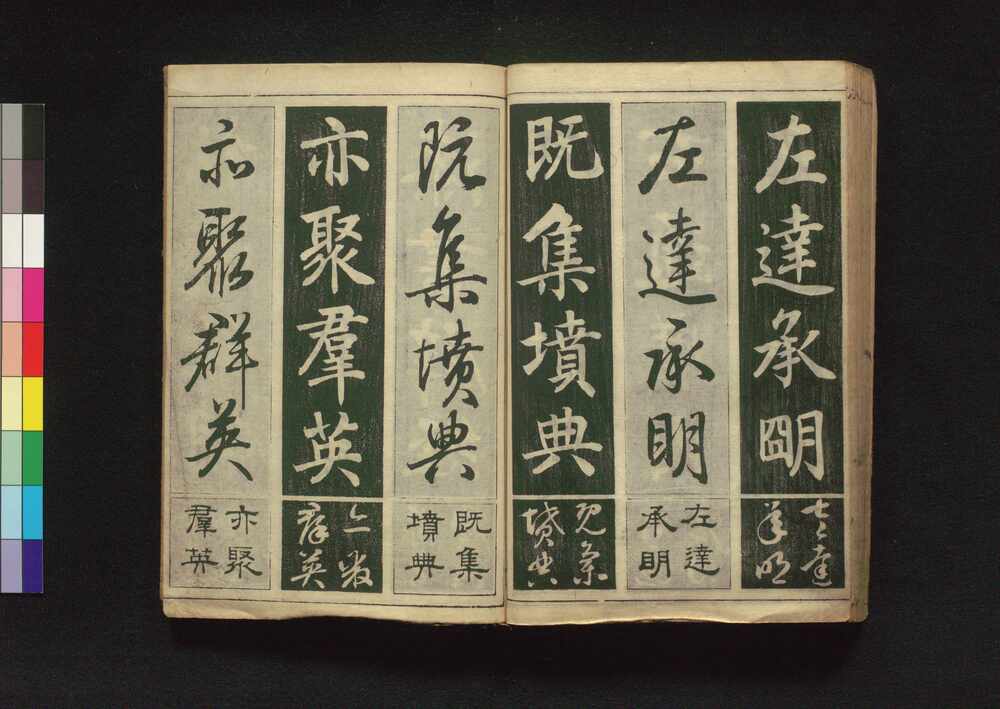 左達承明
左達
承明
左達承明
左達
承明
既集墳典
既集
墳典
既集墳典
既集
墳典
亦聚羣英
亦聚
群英
亦聚群英
亦聚
羣英